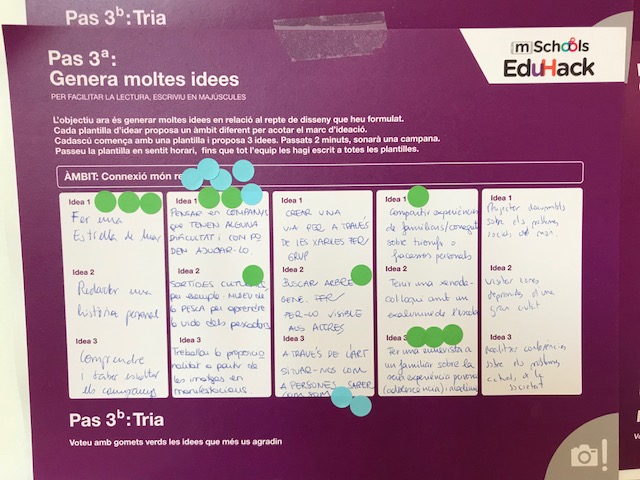 Pas 3b: Tria
Pas 3a:
Genera moltes idees
PER FACILITAR LA LECTURA, ESCRIVIU EN MAJÚSCULES
[m]Schools
EduHack
L'objectiu ara és generar moltes idees en relació al repte de disseny que heu formulat.
Cada plantilla d'idear proposa un àmbit diferent per acotar el marc d'ideació.
Cadascú comença amb una plantilla i proposa 3 idees. Passats 2 minuts, sonarà una campana.
Passeu la plantilla en sentit horari, fins que tot l'equip les hagi escrit a totes les plantilles.
ÀMBIT: Connexió món
Idea 1
Fer una
Estrella de Mar
Idea 2
Redactar una
història personal
Idea 3
Comprendre
i saber escoltar
els companys
Idea 1
PENSAR en COMPANYS
que TENEN ALGUNA
DIFICULTAT I COM PO
DEM AJUDAR-LO.
Idea 2
SORTIDES
per exemple: MUSEU de
la PESCA per aprendre
la vida dels pescadors
Idea 3
Treballar la proporció
a partir de
les imatges en
manifestacions
Idea 1
CREAR UNA
VIA PER A TRAVÉS
DE LES XARXES FER
GRUP
Idea 2
BUSCAR ARBRE
GENE. FER
PER-LO VISIBLE
ALS ALTRES
Idea 3
A TRAVÉS DE L'ART
SITUAR-NOS COM
A PERSONES. SABER
COM SOM
Idea 1
Compartir experiències
de familiars/coneguts
sobre triomfs o
fracassos personals
Idea 2
Tenir una
col·loqui amb un
exalumne de l'escola
Idea 3
Fer una entrevista a
un familiar sobre la
seva experiència personal
(adolescència)
Idea 1
Projectar documentals
sobre els problemes
socials del món.
Idea 2
Visitar zones
deprimides d'una
gran ciutat
Idea 3
Realitzar conferències
sobre els problemes
actuals de la
societat
Pas 3b: Tria
Voteu amb gomets verds les idees que més us agradin